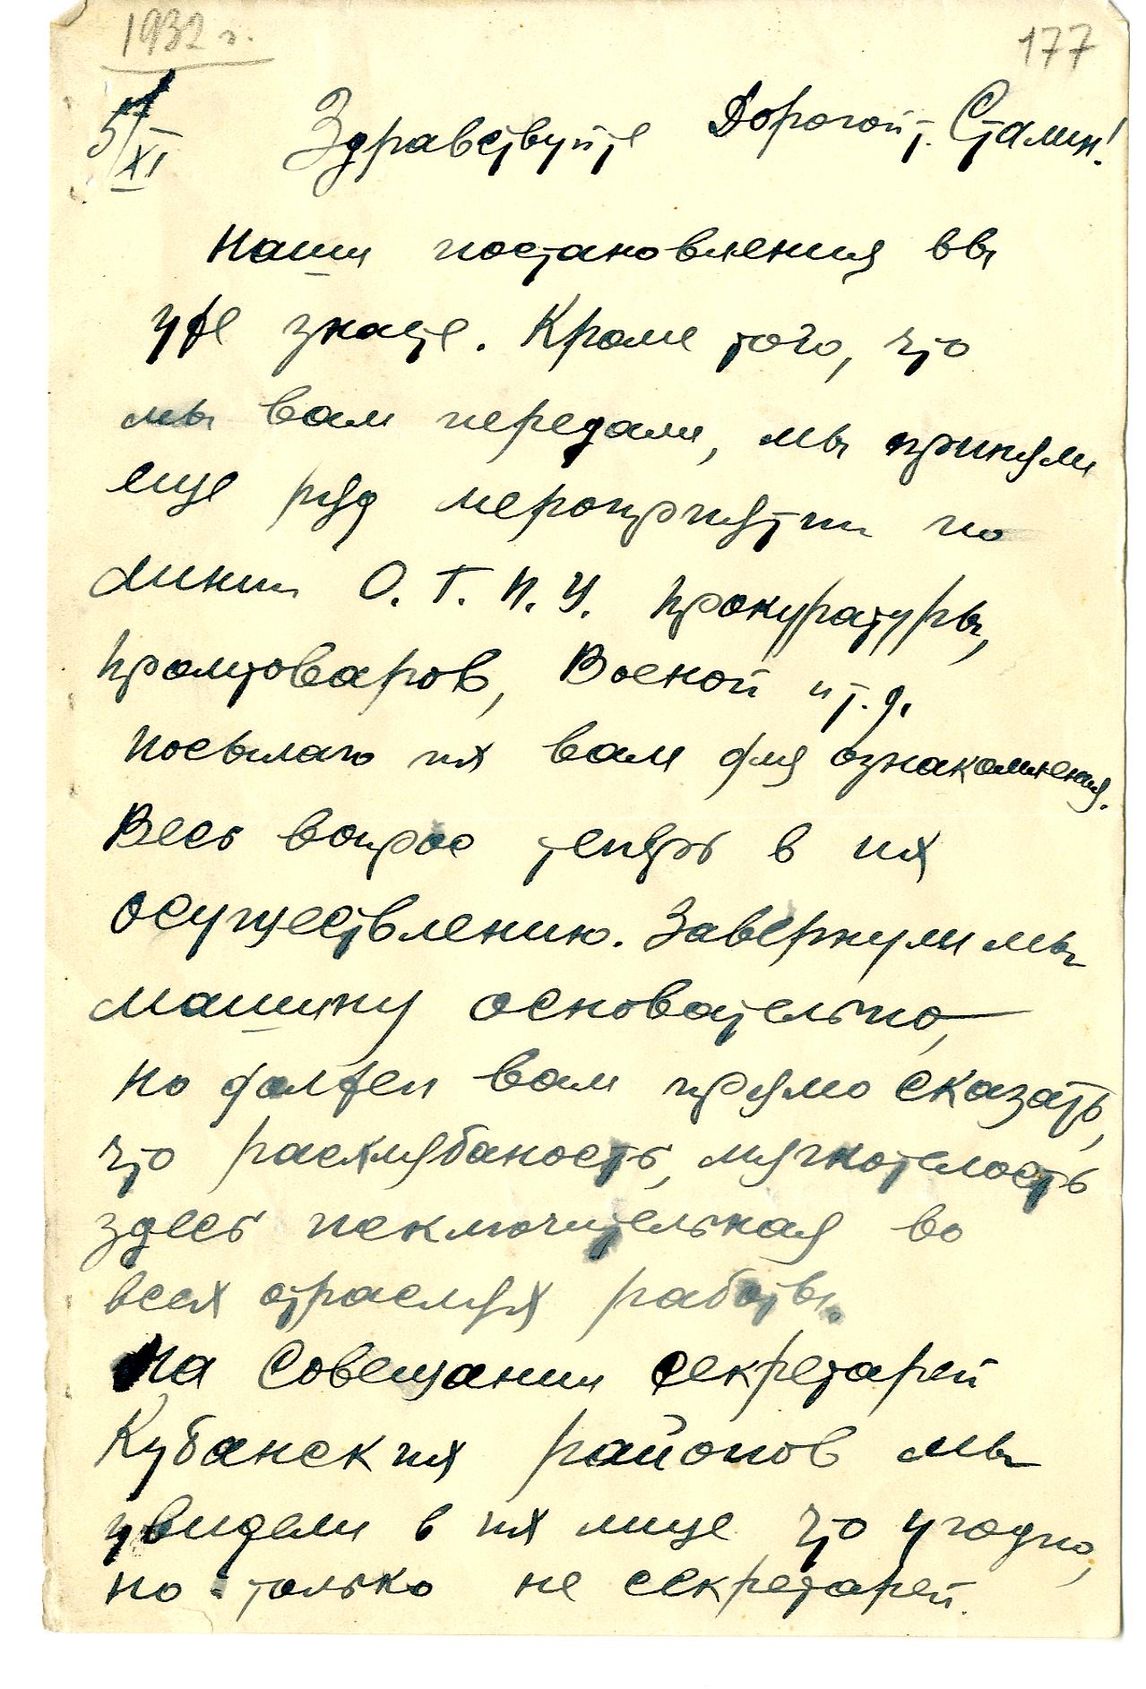 1932 г.
177
5/XI
Здравствуйте Дорогой т. Сталин!
Наши постановления вы
уже знаете. Кроме того, что
мы вам передали, мы приняли
еще ряд мероприятии по
линии О.Г.П.У. прокуратуры,
промтоваров, Военой и т.д.
посылаю их вам для ознакомления.
Весь вопрос теперь в их
осуществлению. Завернули мы
машину основательно,
но должен вам прямо сказать,
что расхлябаность, мягкотелость
здесь исключительная во
всех отраслях работы.
На Совещании секретарей
Кубанских районов мы
увидели в их лице что угодно,
но только не секретарей.